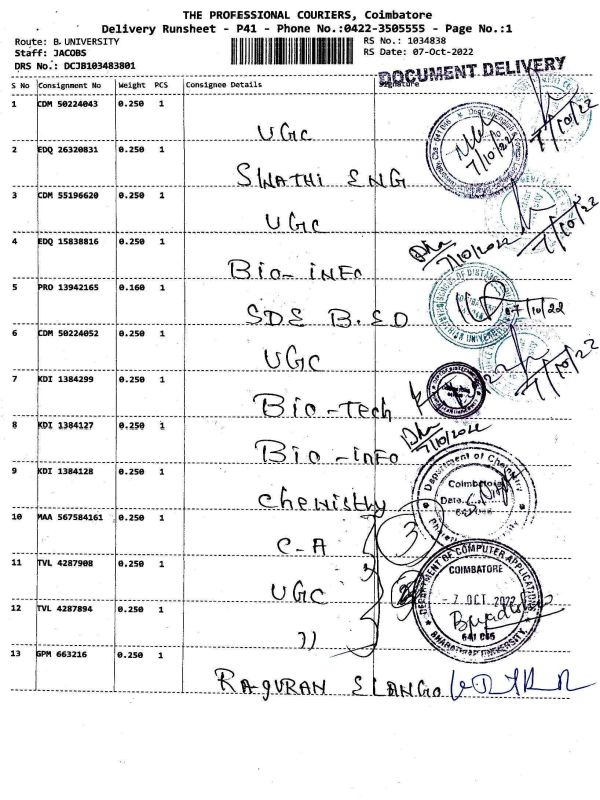 THE PROFESSIONAL COURIERS, Coimbatore
Delivery Runsheet - P41 - Phone No.:0422-3505555 - Page No.:1
Route: B. UNIVERSITY
RS No.: 1034838
Staff: JACOBS
RS Date: 07-Oct-2022
DRS No.: DCJB103483801
DOCUMENT DELIVERY
S No Consignment No Weight PCS Consignee Details Signature
1 CDM 50224043 0.250 1
UGC
7/10/22
7/10/22
2 EDQ 26320831 0.250 1
SWATHI ENG
3 CDM 55196620 0.250 1
UGC
7/10/22
4 EDQ 15838816 0.250 1
7/10/2022
BIO-INFO
5 PRO 13942165 0.160 1
SDE B.ED
07/10/22
6 CDM 50224052 0.250 1
UGC
7/10/22
7 KDI 1384299 0.250 1
Bio-Tech
8 KDI 1384127 0.250 1
7/10/2022
Bio-info
9 KDI 1384128 0.250 1
Department of Chemistry
Coimbatore
Date
chemistry
10 MAA 567584161 0.250 1
3
C-A
11 TVL 4287908 0.250 1
DEPARTMENT OF COMPUTER APPLICATIONS
COIMBATORE
UGC
7 OCT 2022
12 TVL 4287894 0.250 1
641 046
BHARATHIAR UNIVERSITY
13 GPM 663216 0.250 1
RAGURAN ELANGO